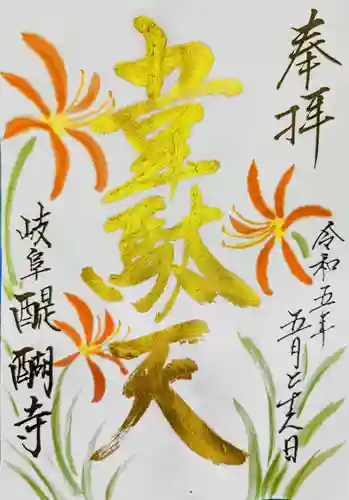 奉拝
令和五年
五月二十八日
韋駄天
岐阜醍醐寺